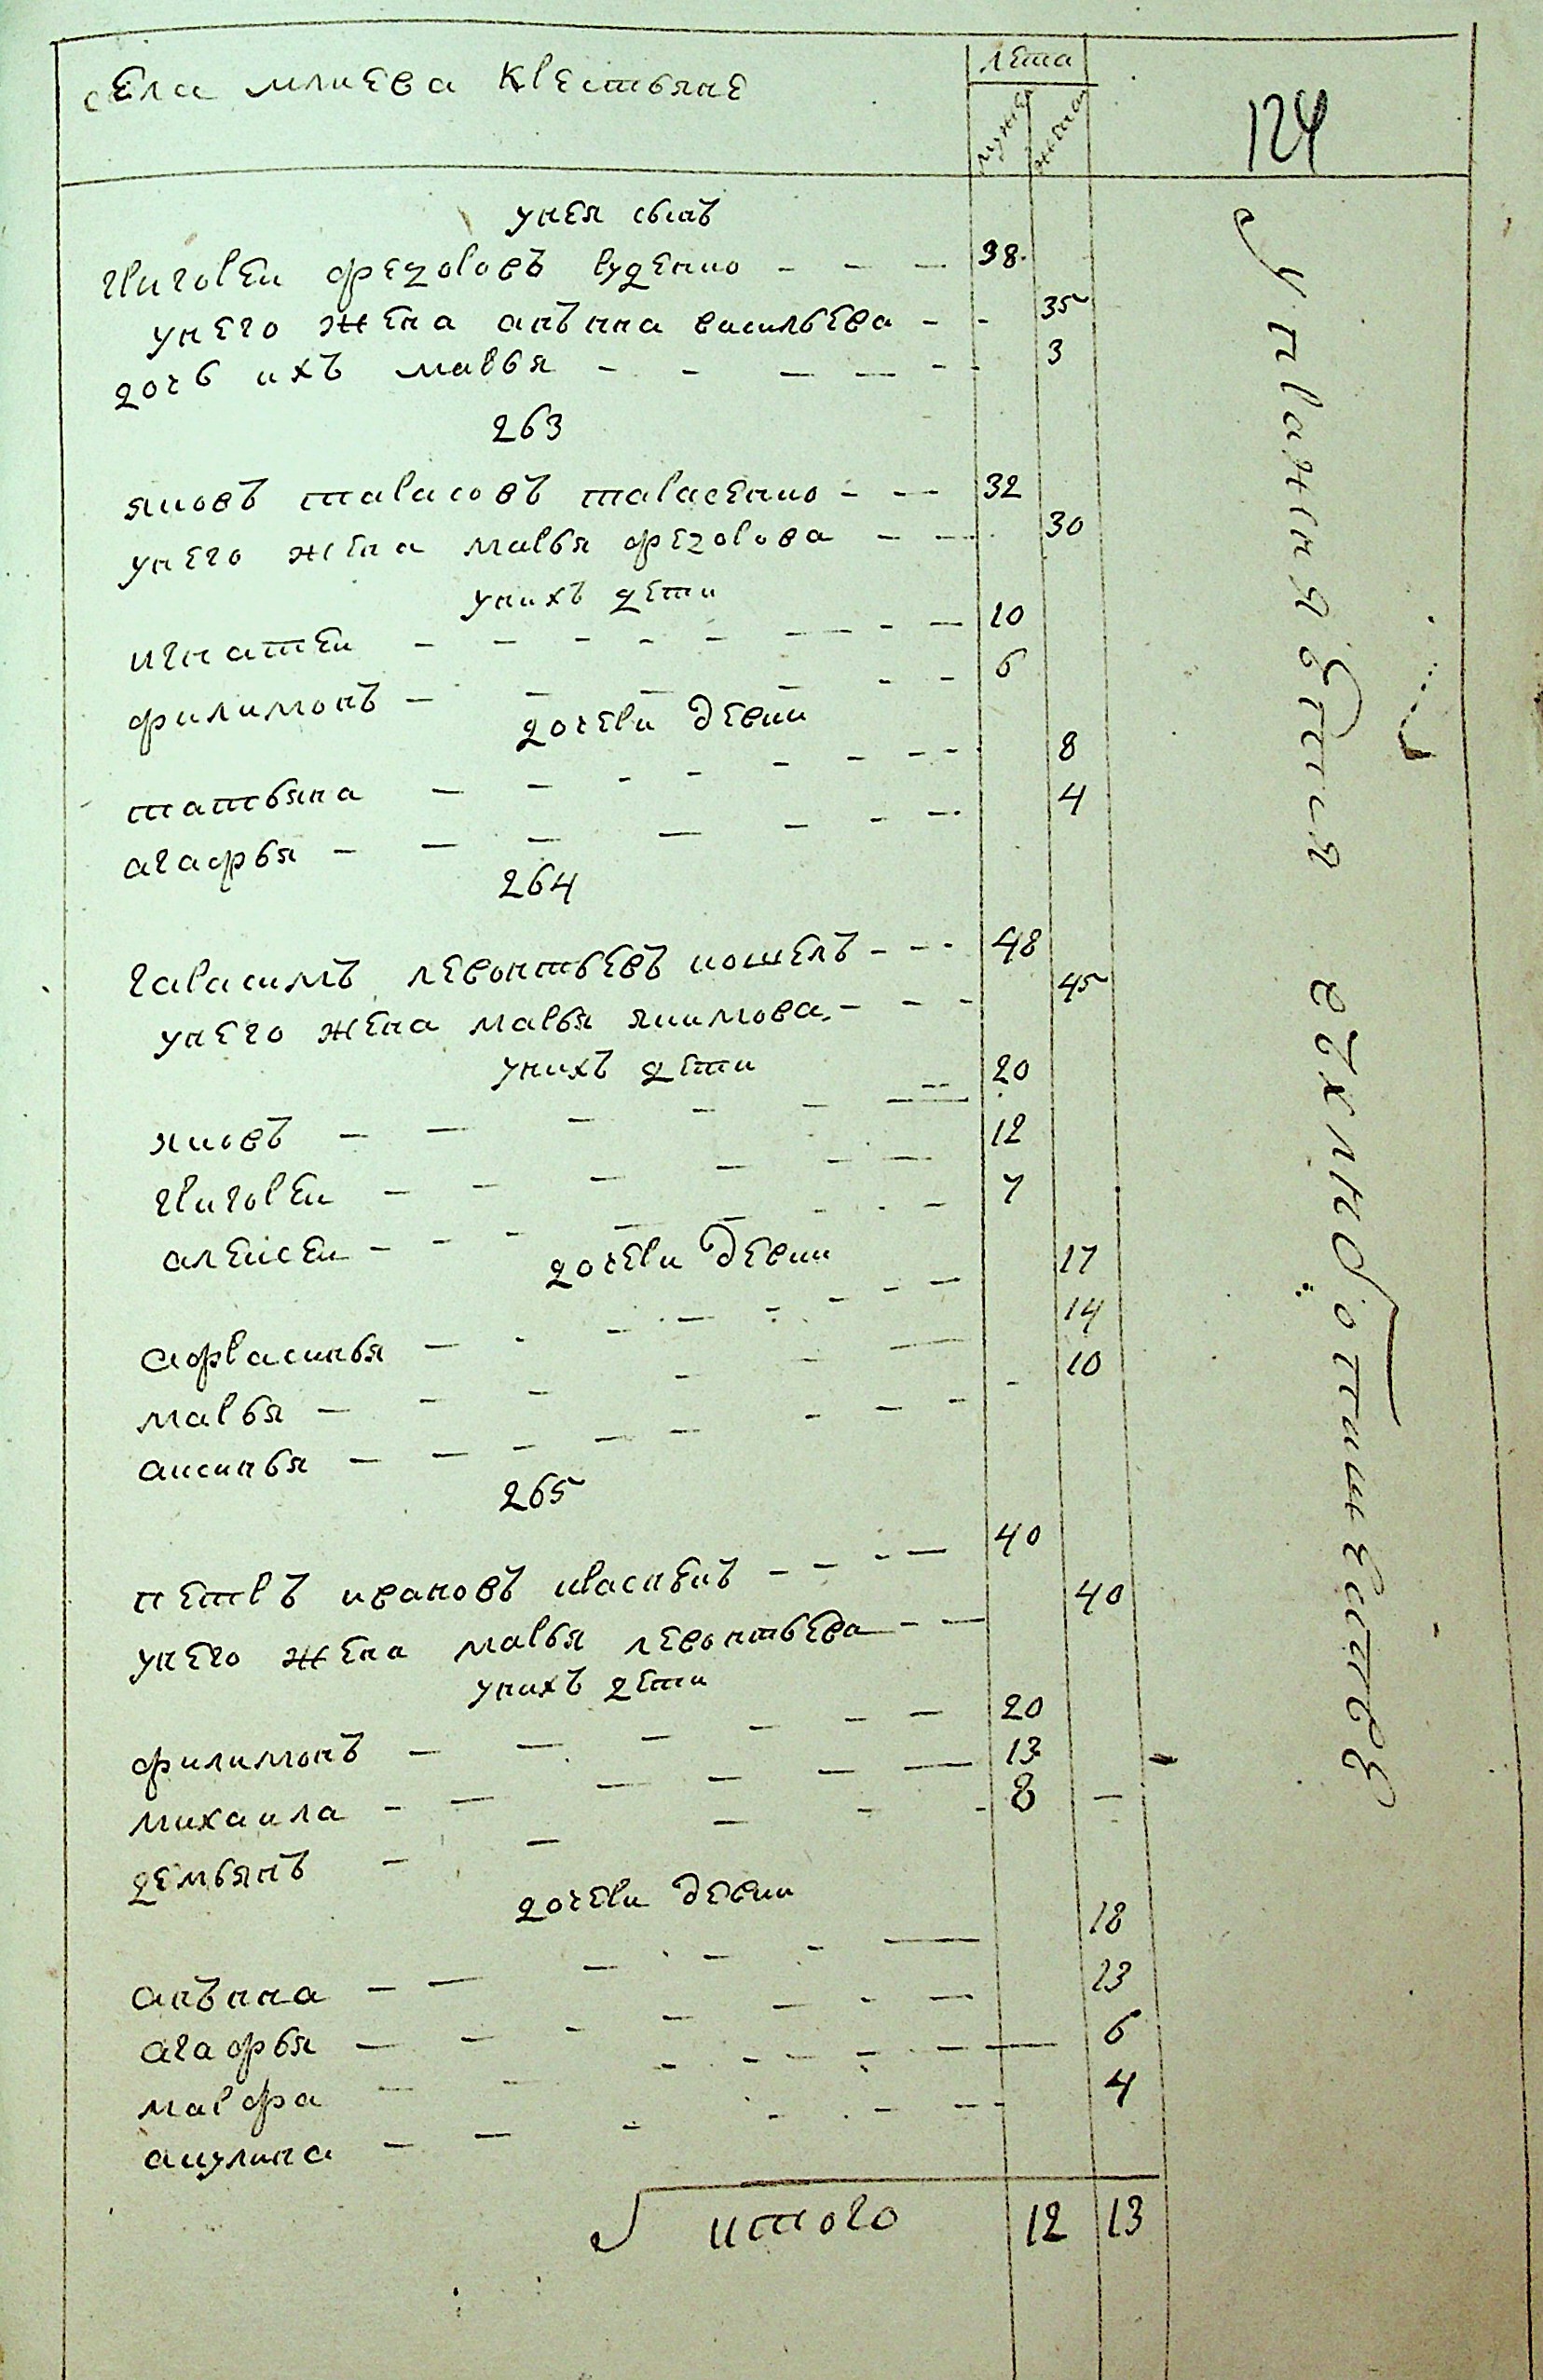 села млиева крестьяне
лета
мужес
женска
124
унея сынъ
григорей федоровъ руденко - - - 38
унего жена анънна васильева - - 35
дочь ихъ марья - - - - - 3
263
яковъ тарасовъ тарасенко - - - 32
унего жена марья федорова - - 30
унихъ дети
игнатей - - - - - - - - 10
филимонъ - - - - - - 6
дочери девки
татьяна - - - - - - - - 8
агафья - - - - - - - 4
264
гарасимъ левонтьевъ кошелъ - - - 48
унего жена марья якимова - - - 45
унихъ дети
яковъ - - - - - - - 20
григорей - - - - - - 12
алексей - - - - - - - - 7
дочери девки
афрасинья - - - - - - - 17
марья - - - - - - 14
аксинья - - - - - - - - 10
265
петръ ивановъ краснекъ - - - - 40
унего жена марья левонтьева - - 40
унихъ дети
филимонъ - - - - - - 20
михаила - - - - - - 13
демьянъ - - - - - 8
дочери девки
анънна - - - - - - 18
агафья - - - - - - - 13
марфа - - - - - - - 6
акулина - - - - - - 4
итого 12 13